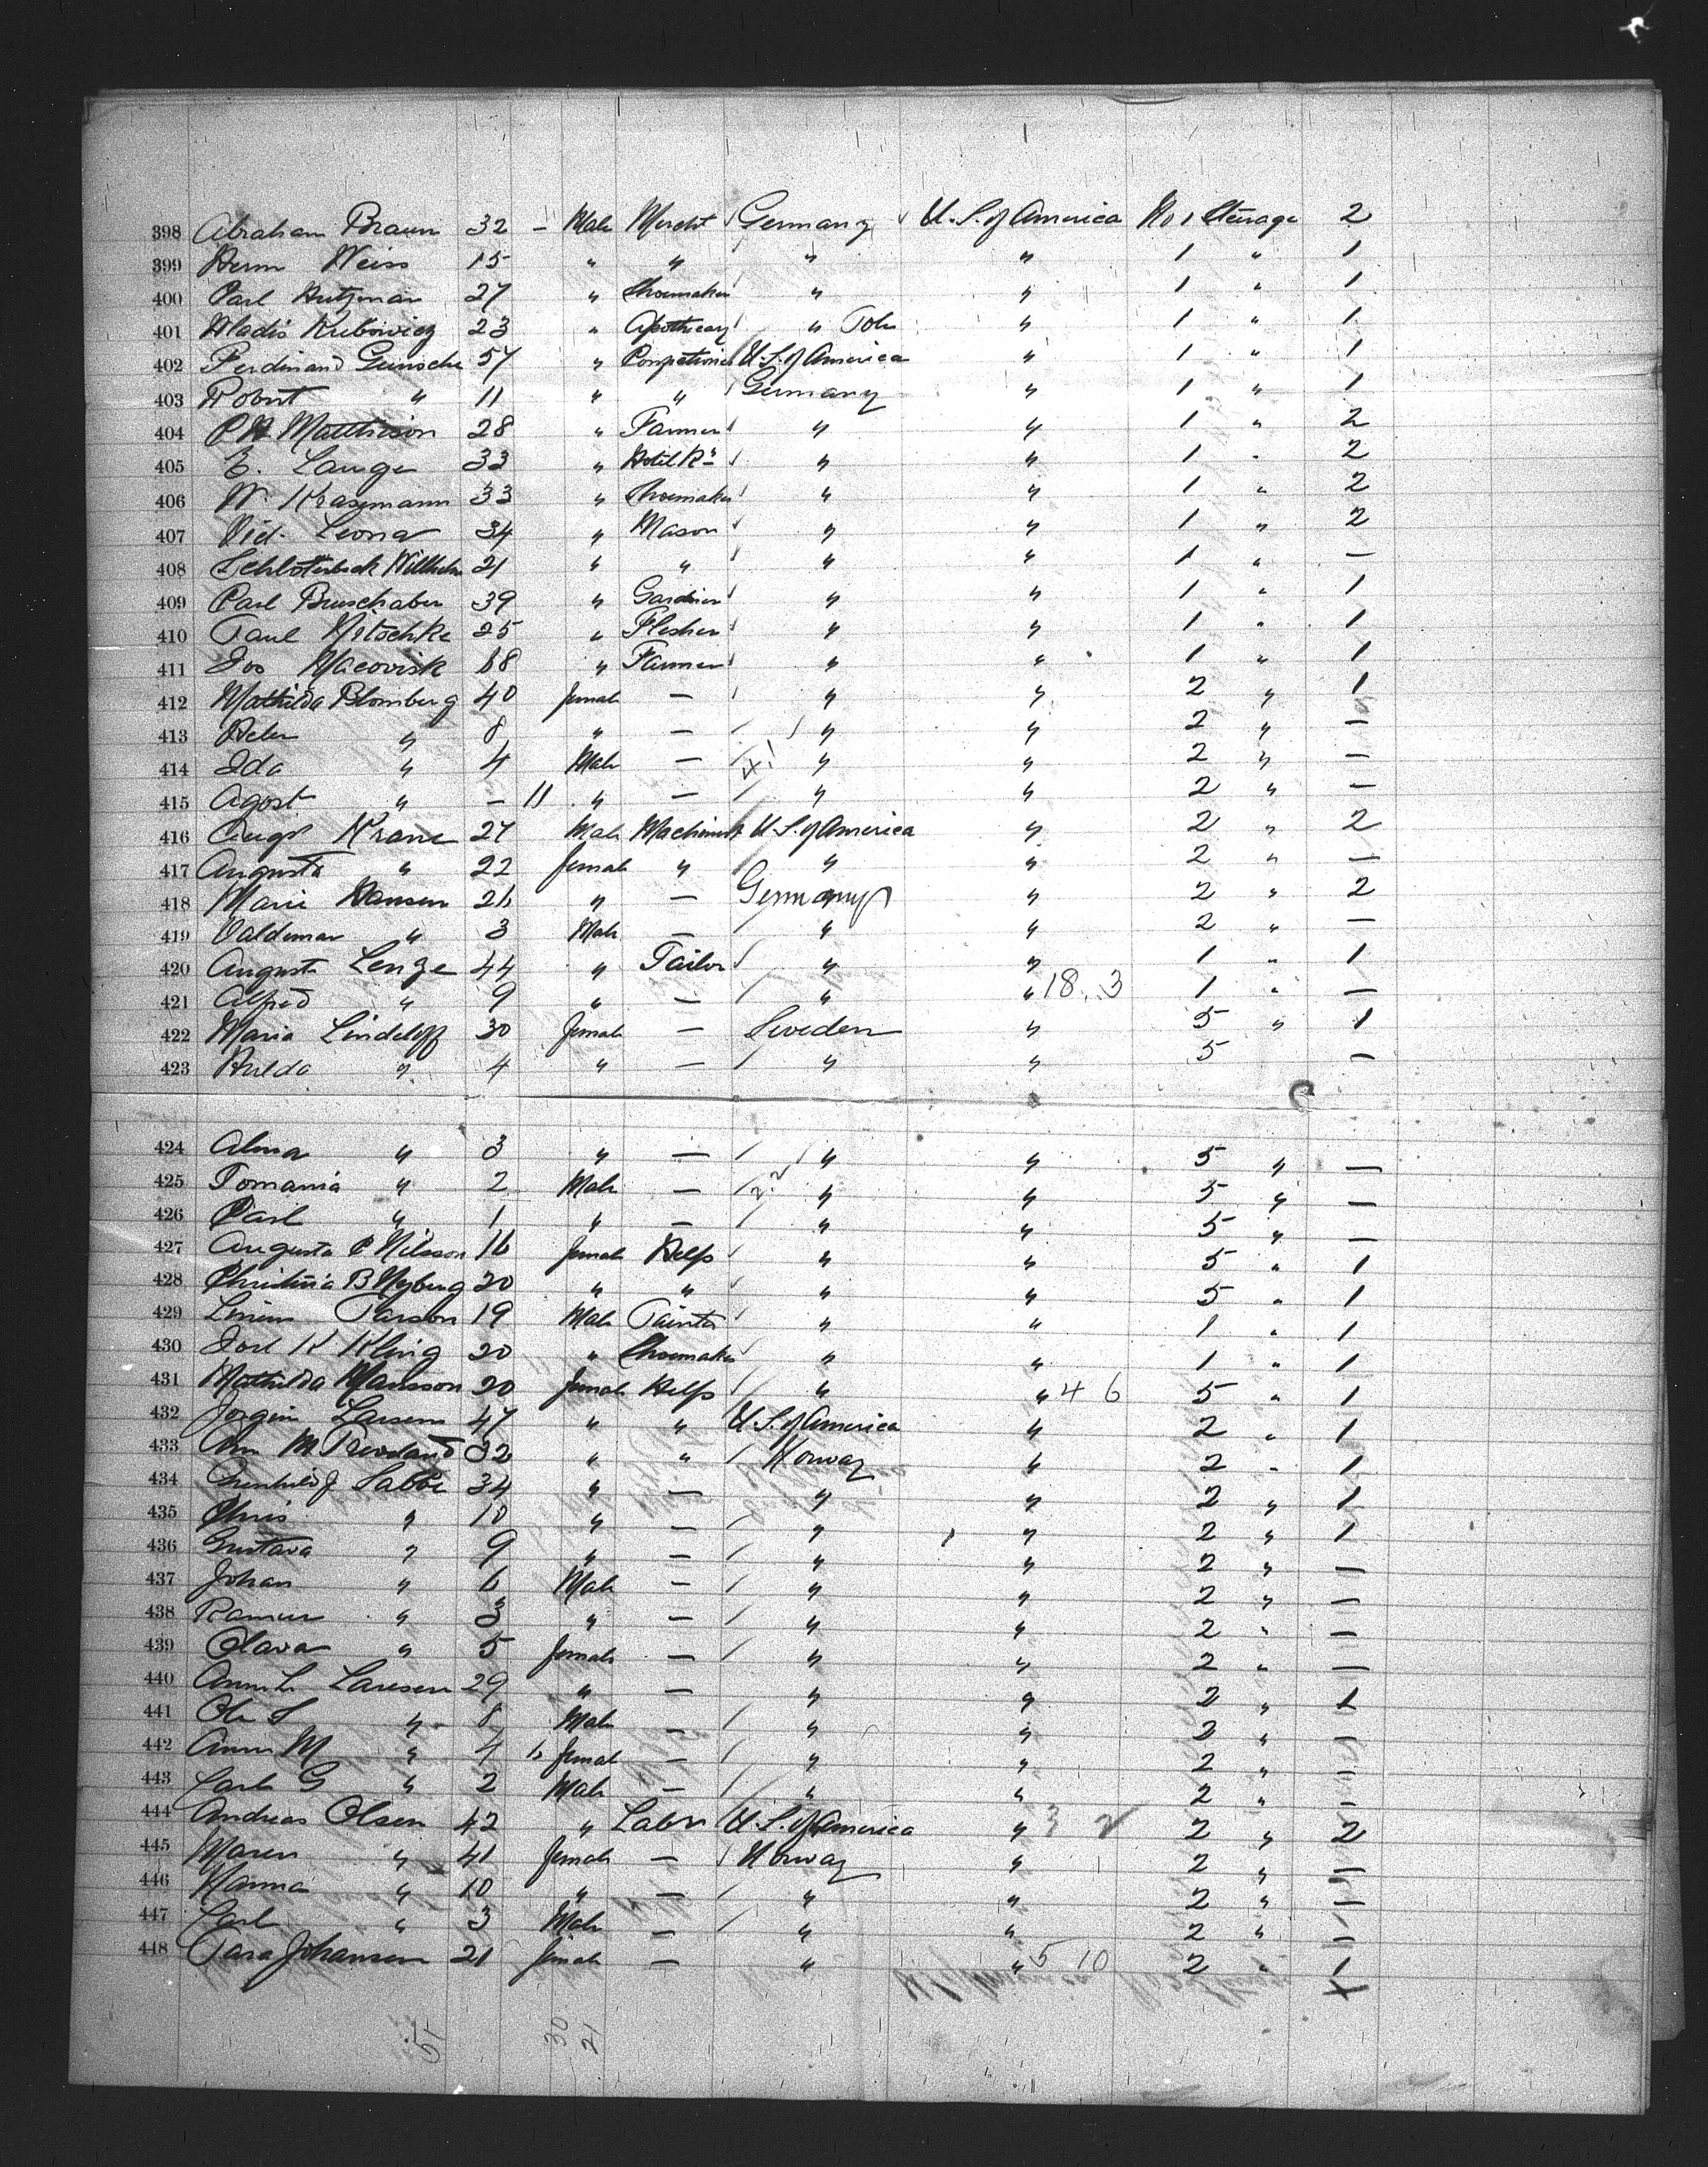 398 Abraham Braun 32 – Male Mercht Germany U.S. of America No 1 Steerage 2
399 Herm Weiss 15 " " " " 1 " 1
400 Carl 27 " Shoemaker " " 1 " 1
401 Wladis 23 " Apothecary " Poln " 1 " 1
402 Ferdinand 57 " U.S. of America " 1 " 1
403 Robert " 11 " " Germany " 1 " 1
404 28 " Farmer " " 1 " 2
405 E. Lange 33 " Hotel Kr " " 1 " 2
406 W. Krasemann 33 " Shoemaker " " 1 " 2
407 Leona 34 " Mason " " 1 " 2
408 Schloterbeck Willhelm 21 " " " " 1 " —
409 Carl 39 " Gardner " " 1 " 1
410 Paul Nitschke 25 " Flesher " " 1 " 1
411 Jos Macovisk " Farmer " " 1 " 1
412 Mathilda Blomberg 40 female — " " 2 " 1
413 " 8 " — " " 2 " —
414 Ida " 4 Male — 4 " " 2 " —
415 Agost " – 11 " — " " 2 " —
416 Augt Krane 27 Male Machinist U.S. of America " 2 " 2
417 Augusta " 22 female " " " 2 " —
418 Marie Hansen 26 " — Germany " 2 " 2
419 Valdemar " 3 Male — " " 2 " —
420 August Lenze 44 " Tailor " " 1 " 1
421 Alfred " 9 " — " " 18. 3 1 " —
422 Maria Lindeloff 30 female — Sweden " 5 " 1
423 Hulda " 4 " — " " 5 —
424 Alma " 3 " — " " 5 " —
425 " 2 Male — 2.2 " " 5 " —
426 Carl " 1 " — " " 5 " —
427 Augusta C Nilsson 16 female Help " " 5 " 1
428 Christina B Nyberg 20 " " " " 5 " 1
429 Parson 19 Male Painter " " 1 " 1
430 K Kling 20 " Shoemaker " " 1 " 1
431 Mathilda Mansson 20 female Help " " 4 6 5 " 1
432 Jorgin Larsen 47 " " U.S. of America " 2 " 1
433 Ann M 32 " " Norway " 2 " 1
434 J 34 " — " " 2 " 1
435 Chris " 10 " — " " 2 " 1
436 Gustava " 9 " — " " 2 " —
437 Johan " 6 Male — " " 2 " —
438 " 3 " — " " 2 " —
439 Olava " 5 female — " " 2 " —
440 Ann L Laresen 29 " — " " 2 " 1
441 Ole S " 8 Male — " " 2 " —
442 Ann M " 4 6 female — " " 2 " —
443 Carl G " 2 Male — " " 2 " —
444 Andreas Olsen 42 " Labor U.S. of America " 3 2 2 " 2
445 Maren " 41 female — Norway " 2 " —
446 Hanna " 10 " — " " 2 " —
447 Carl " 3 Male — " " 2 " —
448 Johansen 21 female — " " 5 10 2 " 1
51 30 21